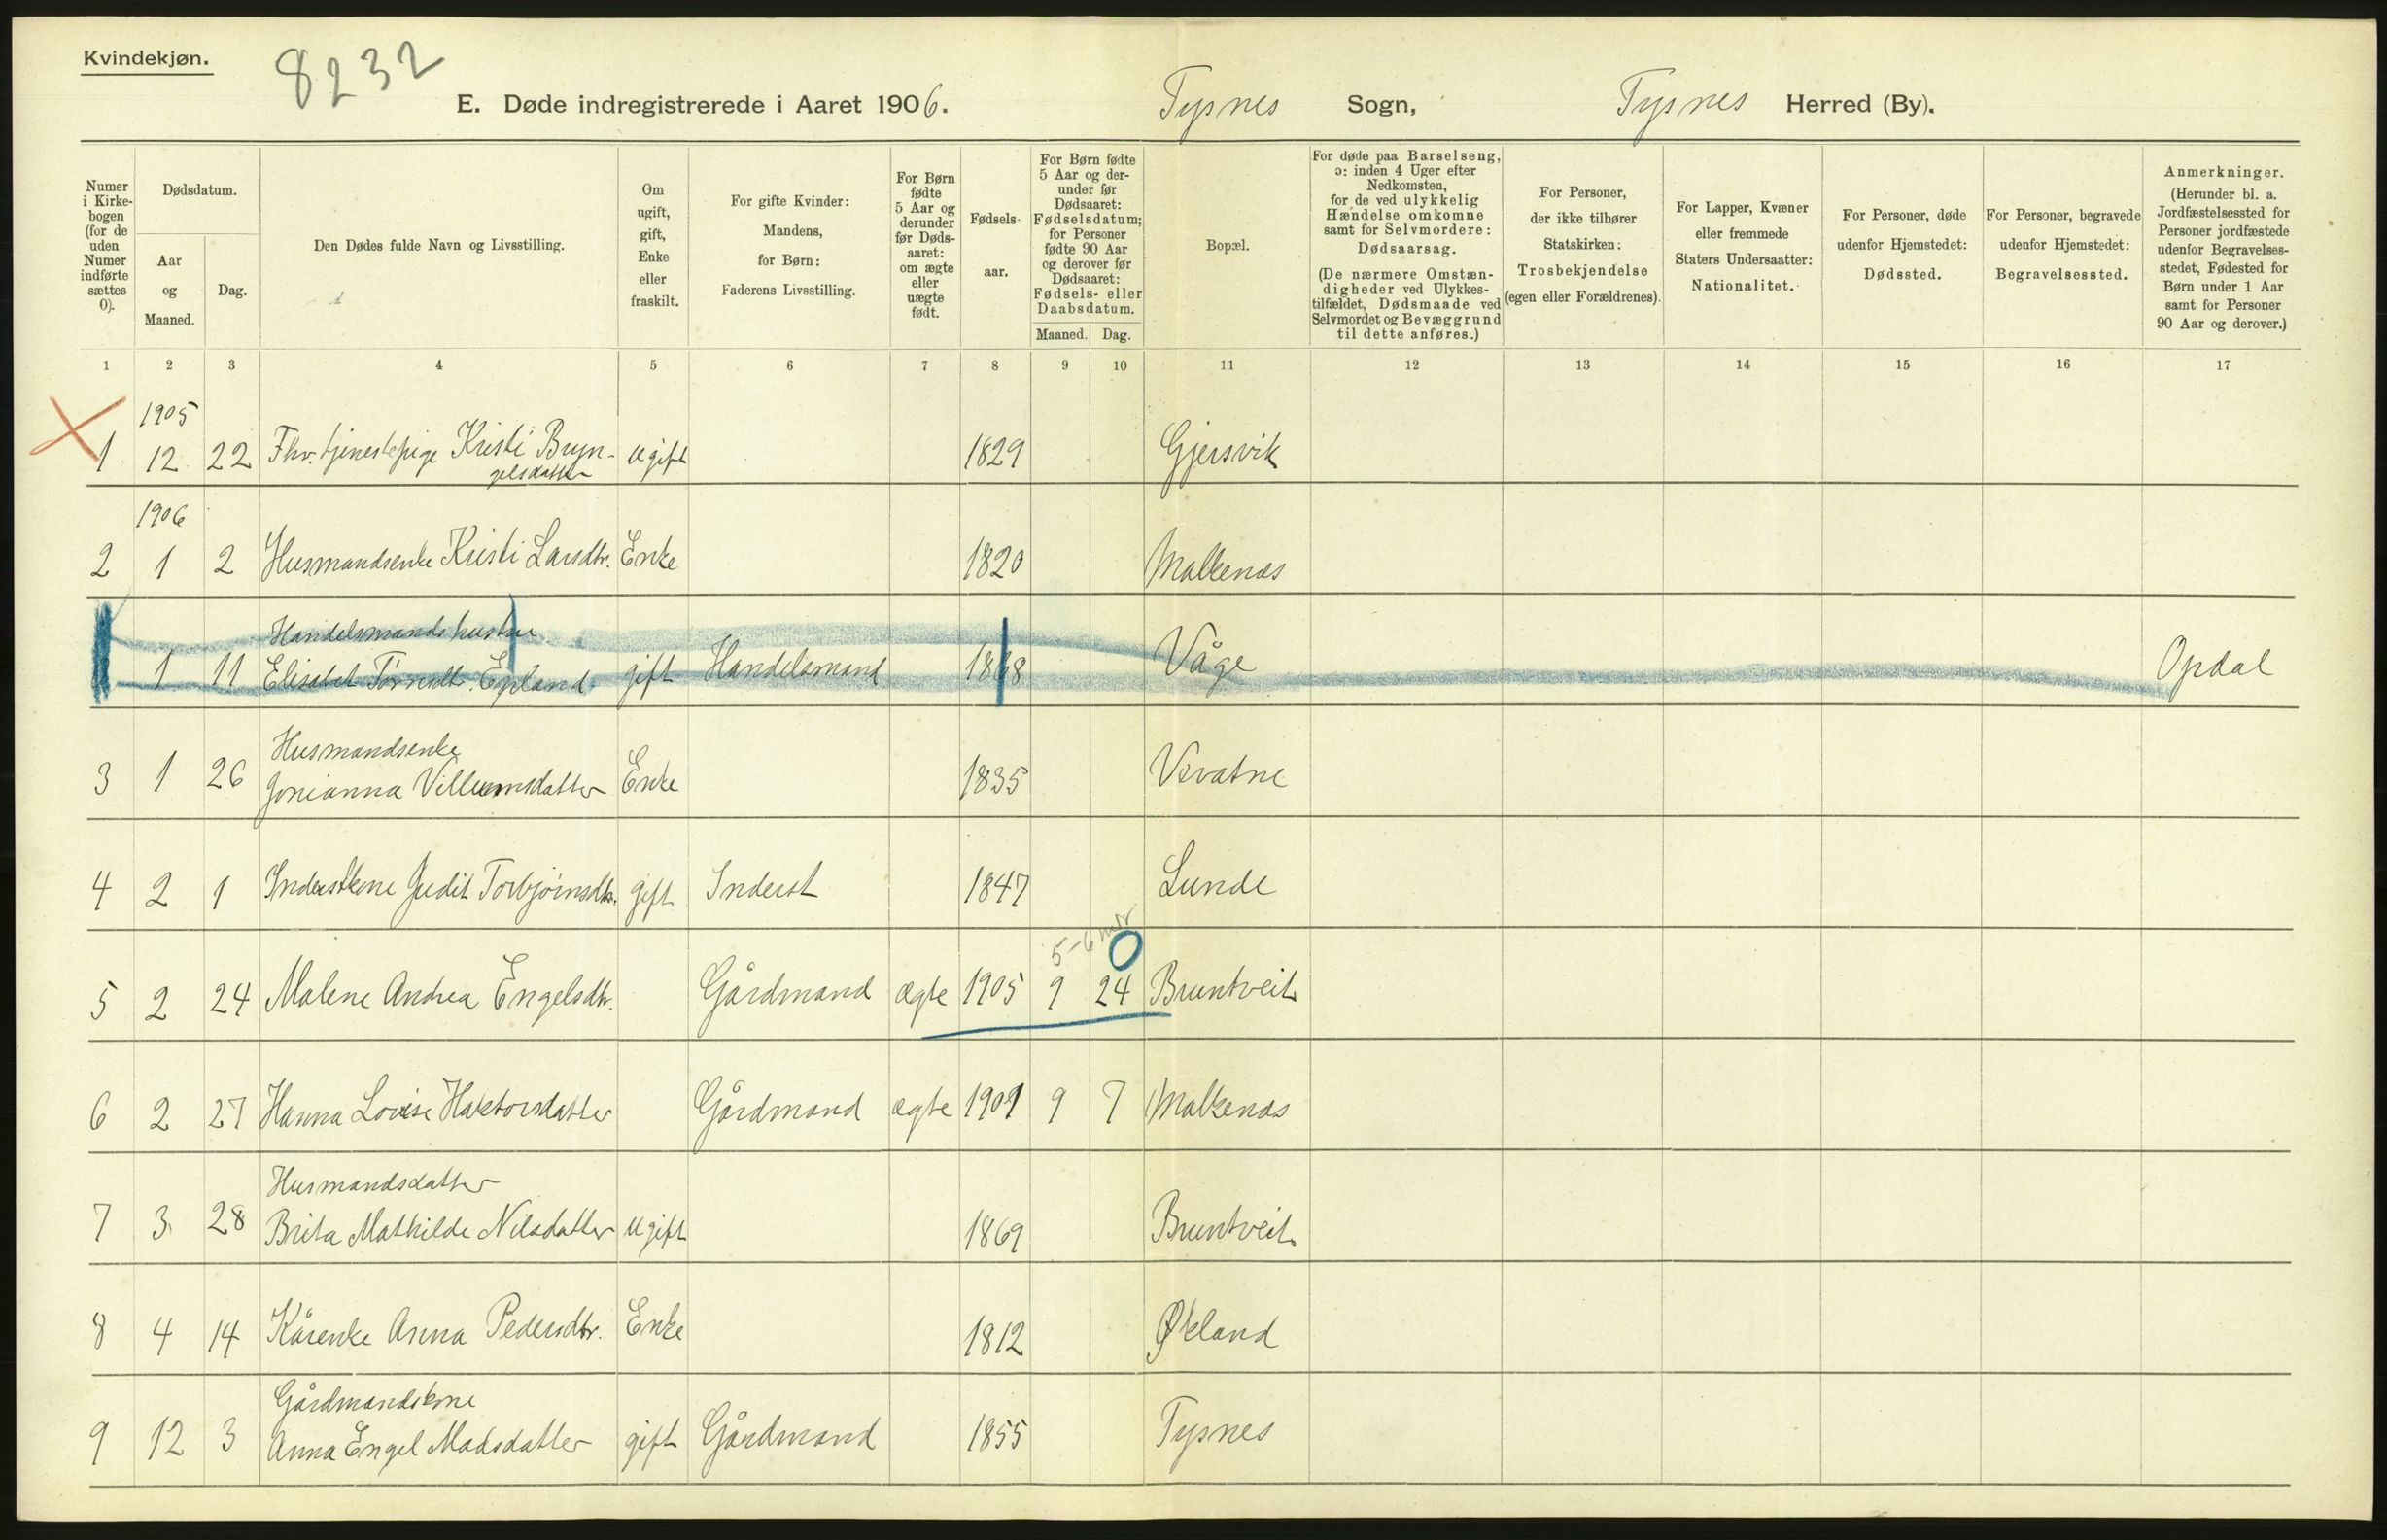 Kvindekjøn.
8232
E. Døde indregistrerede i Aaret 1906. Tysnes Sogn, Tysnes Herred (By).
Numer i Kirke-bogen (for de uden Numer indførte sættes 0).
Dødsdatum.
Aar og Maaned.
Dag.
Den Dødes fulde Navn og Livsstilling.
Om ugift, gift, Enke eller fraskilt.
For gifte Kvinder: Mandens, for Børn: Faderens Livsstilling.
For Børn fødte 5 Aar og derunder før Døds-aaret: om ægte eller uægte født.
Fødsels-aar.
For Børn fødte 5 Aar og der-under før Dødsaaret: Fødselsdatum; for Personer fødte 90 Aar og derover før Dødsaaret: Fødsels- eller Daabsdatum.
Maaned. Dag.
Bopæl.
For døde paa Barselseng, ɔ: inden 4 Uger efter Nedkomsten, for de ved ulykkelig Hændelse omkomne samt for Selvmordere: Dødsaarsag.
(De nærmere Omstæn-digheder ved Ulykkes-tilfældet, Dødsmaade ved Selvmordet og Bevæggrund til dette anføres.)
For Personer, der ikke tilhører Statskirken: Trosbekjendelse (egen eller Forældrenes).
For Lapper, Kvæner eller fremmede Staters Undersaatter: Nationalitet.
For Personer, døde udenfor Hjemstedet: Dødssted.
For Personer, begravede udenfor Hjemstedet: Begravelsessted.
Anmerkninger. (Herunder bl. a. Jordfæstelsessted for Personer jordfæstede udenfor Begravelses-stedet, Fødested for Børn under 1 Aar samt for Personer 90 Aar og derover.)
1 2 3 4 5 6 7 8 9 10 11 12 13 14 15 16 17
1905
1 12 22 Fhv. tjenestepige Kristi Bryn- ugift 1829 Gjersvik
gelsdatter
1906
2 1 2 Husmandsenke Kristi Larsdtr. Enke 1820 Malkenæs
Handelsmandshustru
1 11 Elisabet gift Handelsmand 1868 Våge Opdal
Husmandsenke
3 1 26 Jonianna Villumsdatter Enke 1835 Vevatne
4 2 1 Inderstkone Judit Torbjørnsdtr. gift Inderst 1847 Lunde
5-6 mdr
5 2 24 Malene Andrea Engelsdtr. Gårdmand ægte 1905 9 24 Bruntveit
6 2 27 Hanna Lovise Haktorsdatter Gårdmand ægte 1901 9 7 Malkenæs
Husmandsdatter
7 3 28 Brita Mathilde Nilsdatter ugift 1869 Bruntveit
8 4 14 Kårenke Anna Pedersdtr. Enke 1812 Økland
Gårdmandskone
9 12 3 Anna Engel Madsdatter gift Gårdmand 1855 Tysnes